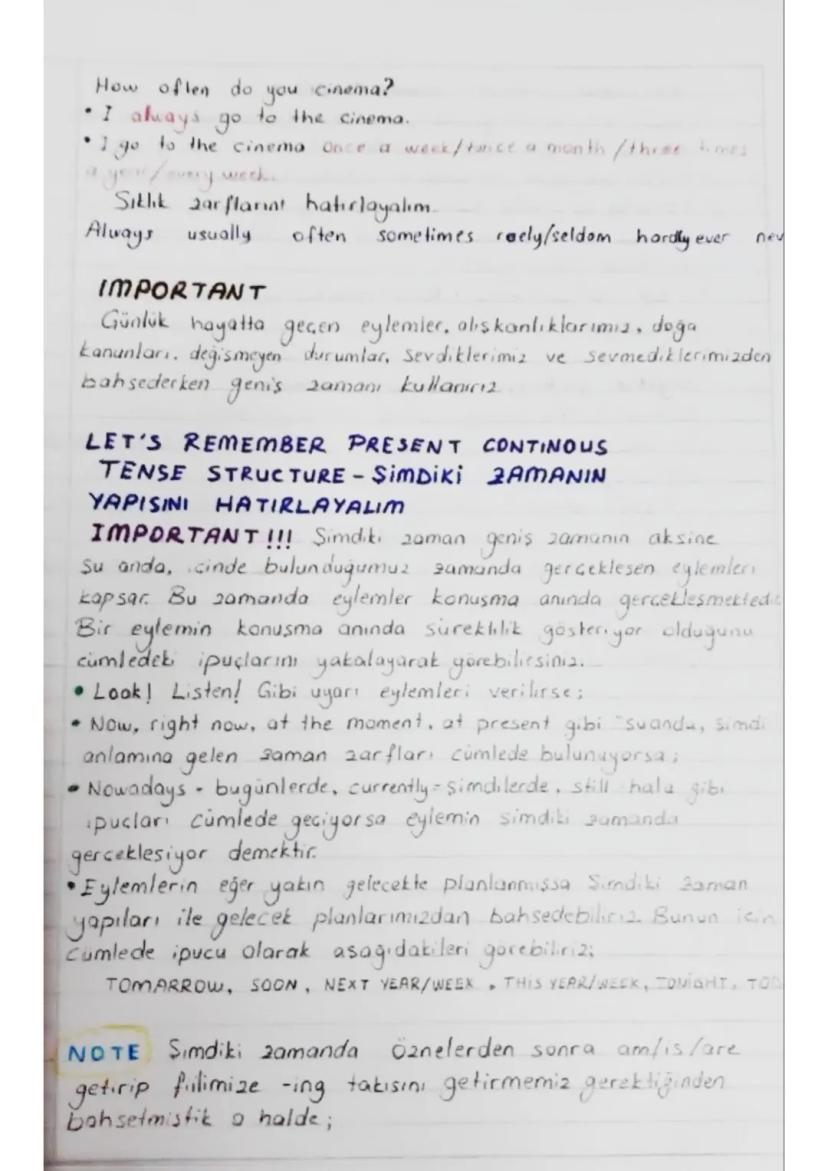 How often do you cinema?
• I always go to the cinema.
• I go to the cinema once a week/twice a month/three times
a year/every week.
Sıklık zarflarını hatırlayalım.
Always usually often sometimes raely/seldom hardly ever nev
IMPORTANT
Günlük hayatta geçen eylemler, alışkanlıklarımız, doğa
kanunları, değişmeyen durumlar, sevdiklerimiz ve sevmediklerimizden
bahsederken geniş zamanı kullanırız.
LET'S REMEMBER PRESENT CONTINOUS
TENSE STRUCTURE - ŞİMDİKİ ZAMANIN
YAPISINI HATIRLAYALIM
IMPORTANT!!! Şimdiki zaman geniş zamanın aksine
şu anda, içinde bulunduğumuz zamanda gerçekleşen eylemleri
kapsar. Bu zamanda eylemler konuşma anında gerçekleşmektedi
Bir eylemin konuşma anında süreklilik gösteriyor olduğunu
cümledeki ipuçlarını yakalayarak görebilirsiniz.
• Look! Listen! Gibi uyarı eylemleri verilirse;
• Now, right now, at the moment, at present gibi "şuanda, şimdi
anlamına gelen zaman zarfları cümlede bulunuyorsa;
• Nowadays - bugünlerde, currently = şimdilerde, still hala gibi
ipuçları cümlede geçiyorsa eylemin şimdiki zamanda
gerçekleşiyor demektir.
• Eylemlerin eğer yakın gelecekte planlanmışsa Şimdiki zaman
yapıları ile gelecek planlarımızdan bahsedebiliriz. Bunun için
cümlede ipucu olarak aşağıdakileri görebiliriz;
TOMARROW, SOON, NEXT YEAR/WEEK, THIS YEAR/WEEK, TONIGHT, TOD
NOTE Şimdiki zamanda öznelerden sonra am/is/are
getirip fiilimize -ing takısını getirmemiz gerektiğinden
bahsetmiştik o halde;